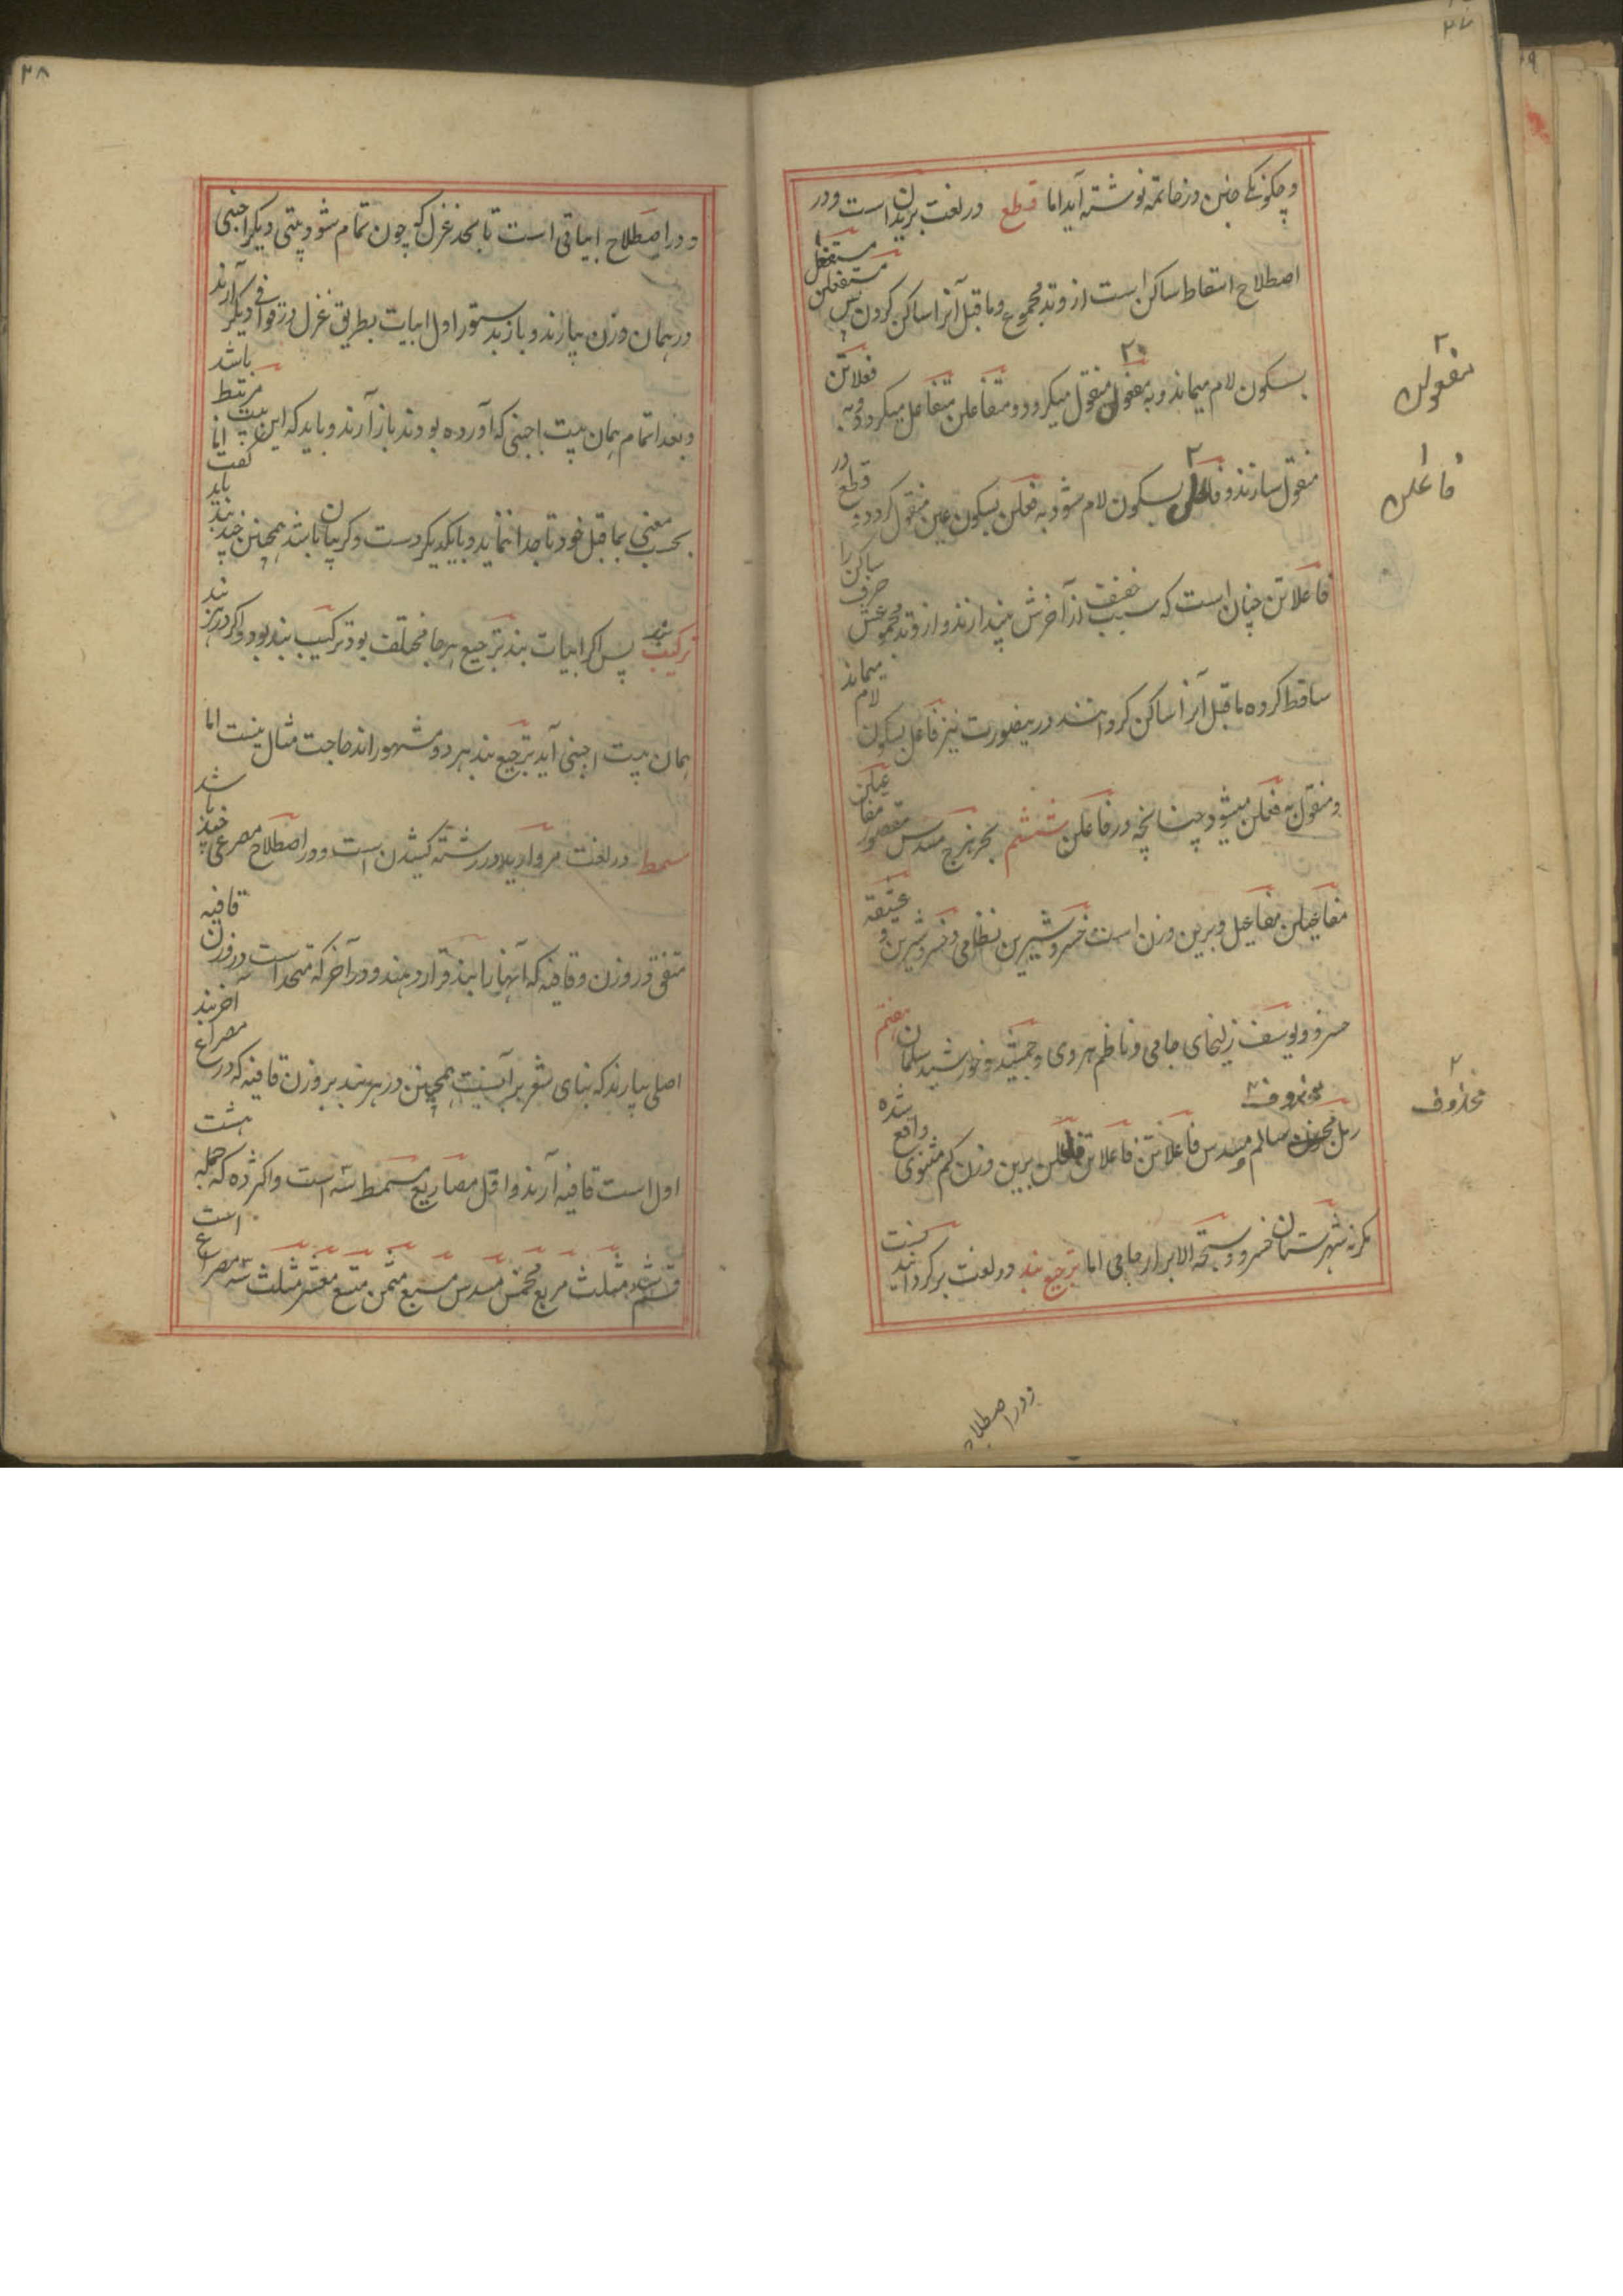 ۲۷
و چکونکے خبن در خاتمه نوشته آید اما قطع در لغت بریدن است و در
اصطلاح اسقاط ساکن است از وتد مجموع و ما قبل آنرا ساکن کردن پس مستفعلن مستفعل
بسکون لام میماند و به مفعولن منقول میکردد و متفاعلن متفاعل میکردد و به فعلاتن
منقول سازند و فاعلن بسکون لام شود به فعلن بسکون عین منقول کردد و در قطع
فاعلاتن چنان است که سبب خفیف از آخرش بیندازند و از وتد مجموعش حرف ساکن را
ساقط کرده ما قبل آنرا ساکن کرده اند درینصورت نیز فاعل بسکون لام میماند
و منقول به فعلن میشود چنانچه در فاعلن ششم بحر هزج مسدس مقصور مفاعیلن
مفاعیلن مفاعیل و برین وزن است خسرو شیرین نظامی و خسرو شیرین و عتیقه
خسرو و یوسف زلیخای جامی و ناظم هروی و جمشید و خورشید سلمان هفتم
رمل سالم مسدس محذوف فاعلاتن فاعلاتن فاعلن برین وزن کم مثنوی واقع شده
مکر نه شهرستان خسرو و سبحة الابرار جامی اما ترجیع بند در لغت بر کردانیدنست
۲ مفعولن
۱ فاعلن
۲ محذوف
و در اصطلاح
۲۸
و در اصطلاح ابیاتی است تا بحد غزل که چون تمام شود بیتی دیکر اجنبی
در همان وزن بیارند و باز بدستور اول ابیات بطریق غزل در قوافی دیکر آرند
و بعد اتمام همان بیت اجنبی که آورده بودند باز آرند و باید که این بیت مرتبط باشد
بحسب معنی بما قبل خود تا جدا ننماید و بایکدیکر دست و کریبان باشد همچنین چند بند باید کفت اما
ترکیب بند پس اکر ابیات بند ترجیع هر جا مختلف بود ترکیب بند بود و اکر در هر بند
همان بیت اجنبی آید ترجیع بند هر دو مشهور اند حاجت مثال نیست اما
سمط در لغت مروارید در رشته کشیدن است و در اصطلاح مصرعی چند باشد
متفق در وزن و قافیه که آنها را بند قرار دهند و در آخر که متحد است در وزن قافیه
اصلی بیارند که بنای شعر بر آنست همچنین در هر بند بر وزن قافیه که در مصراع آخر بند
اول است قافیه آرند و اقل مصاریع مسمط سه است و اکثر ده که جمله هشت
قسم شد مثلث مربع مخمس مسدس مسبع مثمن متسع معشر مثلث سه مصراع است